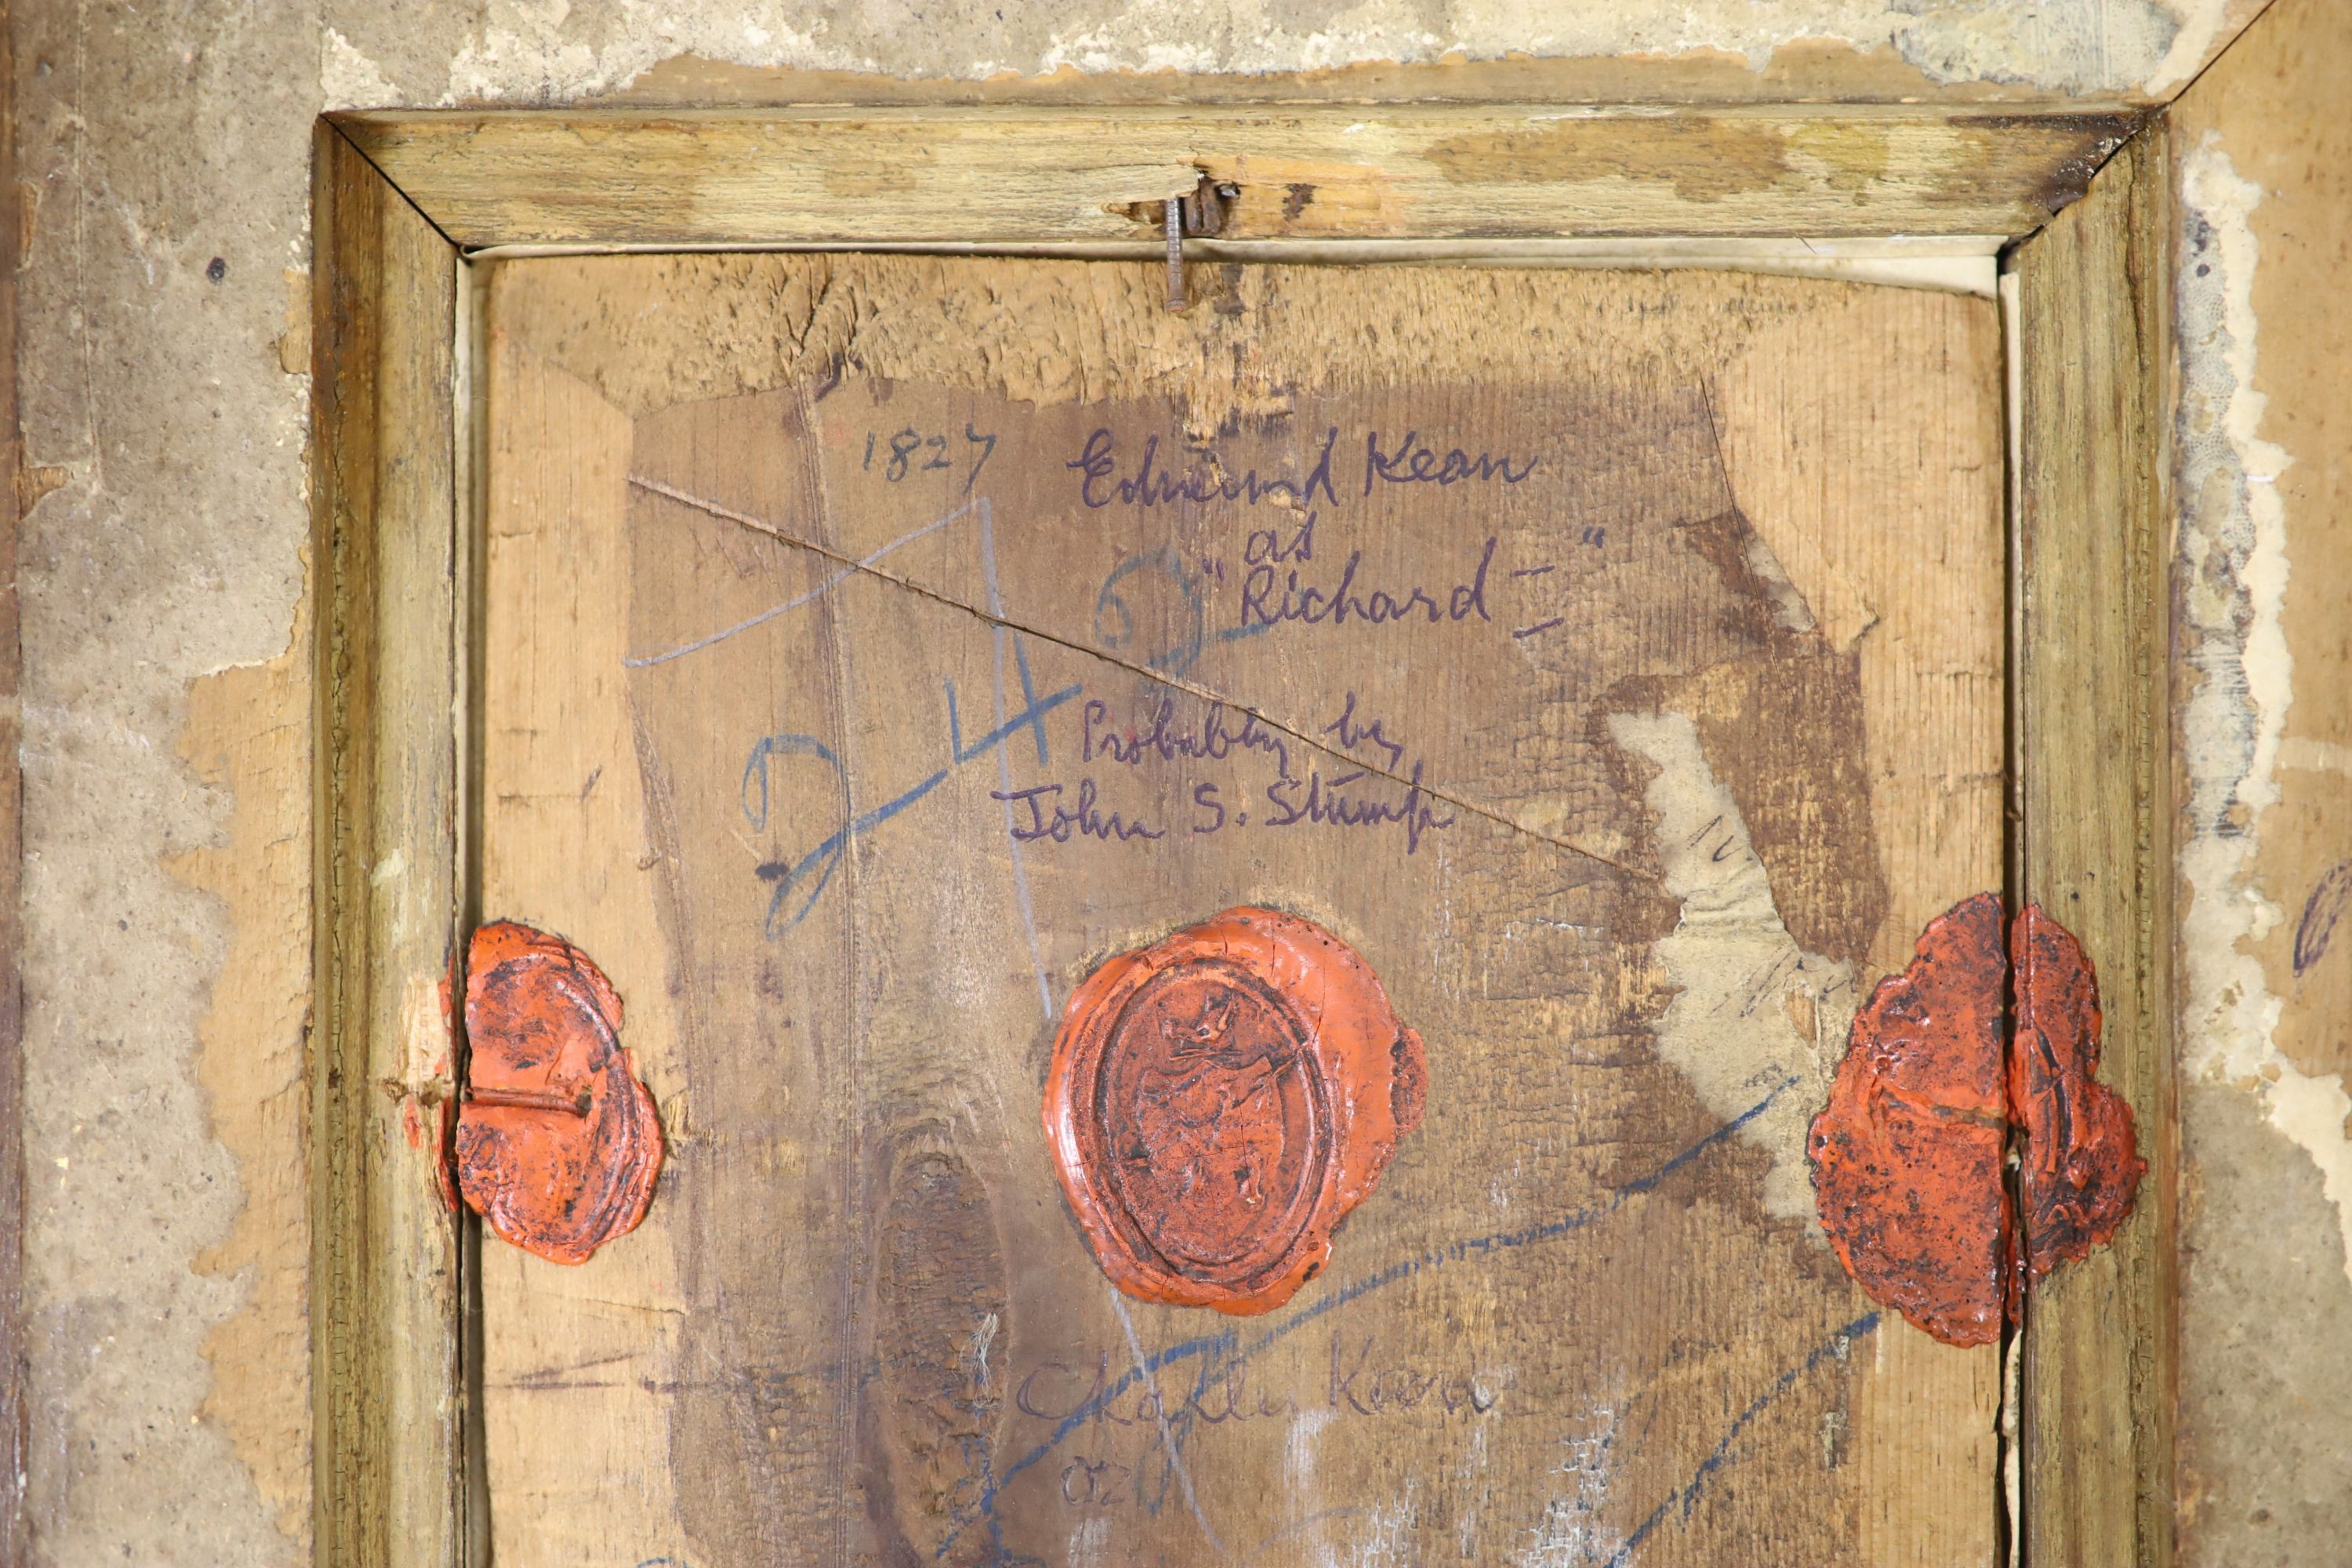 1827
Edmund Kean
as
"Richard II"
242
Probably by
John S. Stump
Kean